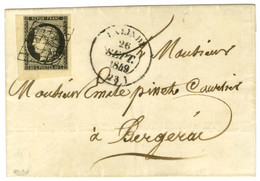 REPUB. FRANC.
LALINDE
26
SEPT.
1849
(23)
Monsieur
Monsieur Emile pinche Courtier
à Bergerac